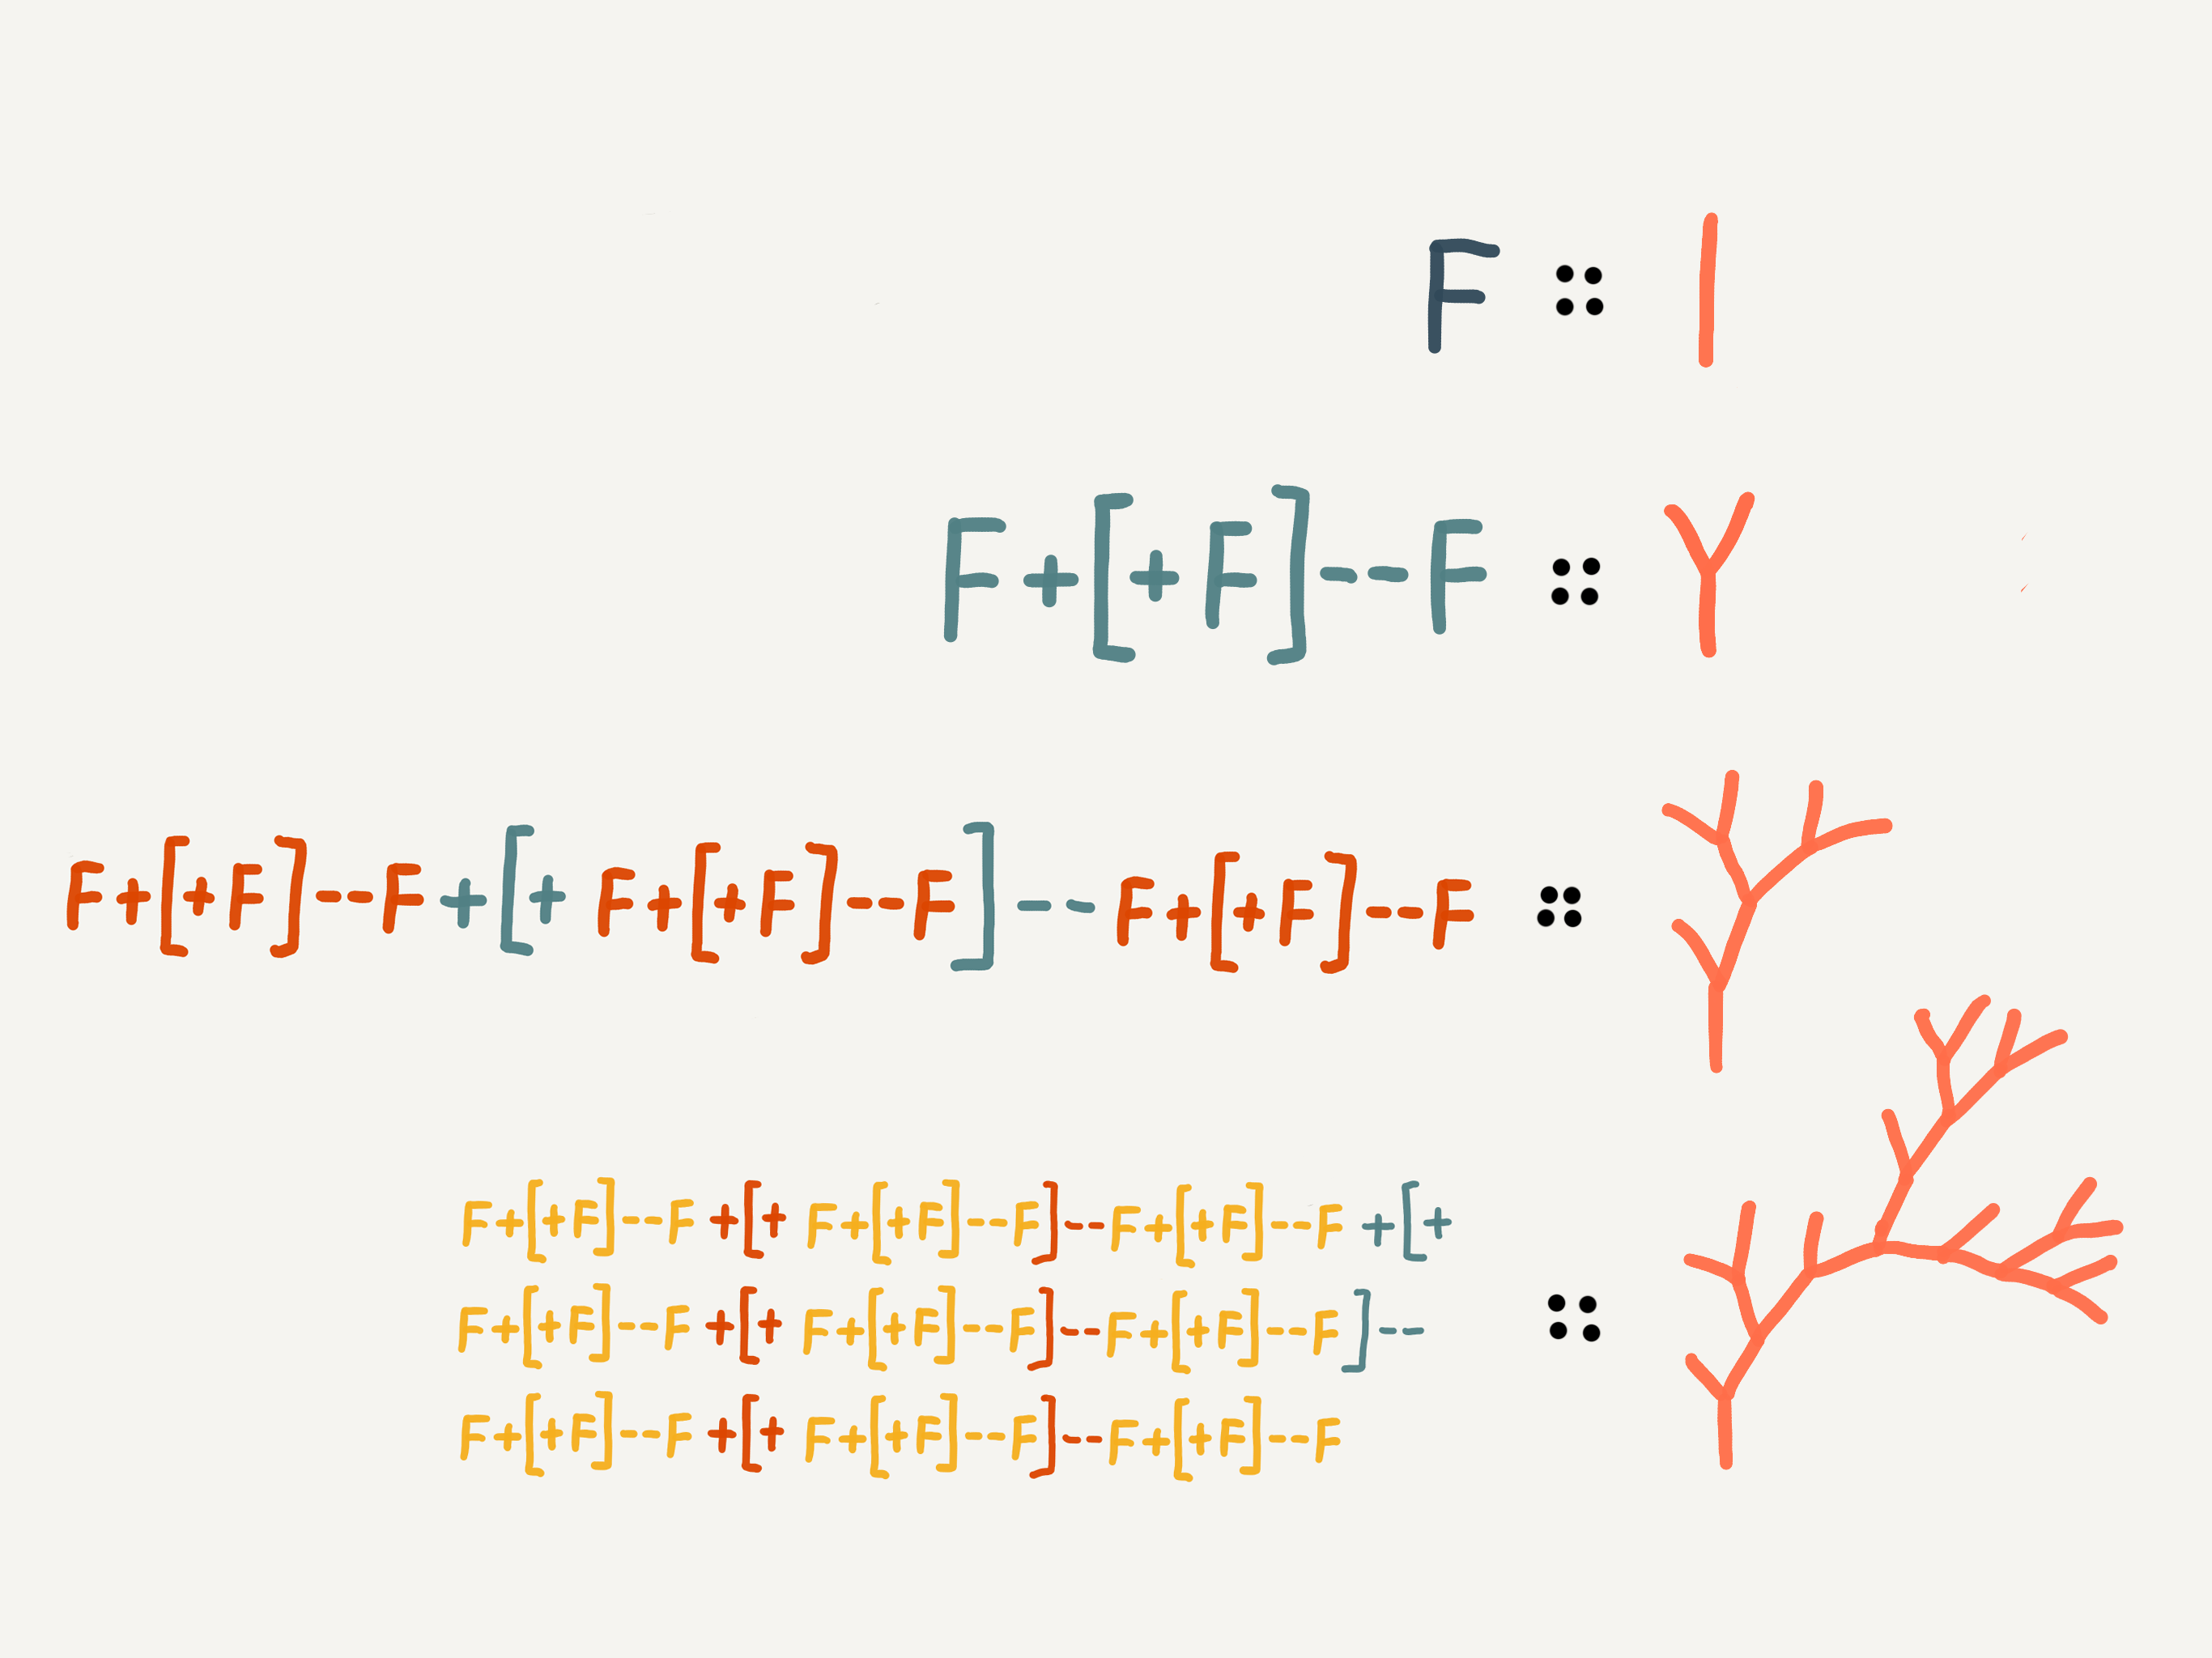 F ::
F+[+F]--F ::
F+[+F]--F+[+F+[+F]--F]--F+[+F]--F ::
F+[+F]--F+[+F+[+F]--F]--F+[+F]--F+[+
F+[+F]--F+[+F+[+F]--F]--F+[+F]--F]-- ::
F+[+F]--F+[+F+[+F]--F]--F+[+F]--F